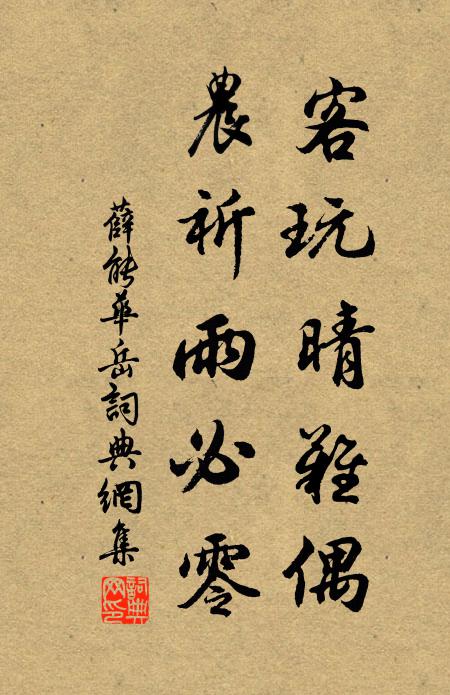 客玩晴難偶
農祈雨必零
薛能華岳詞典網集
詞典网印